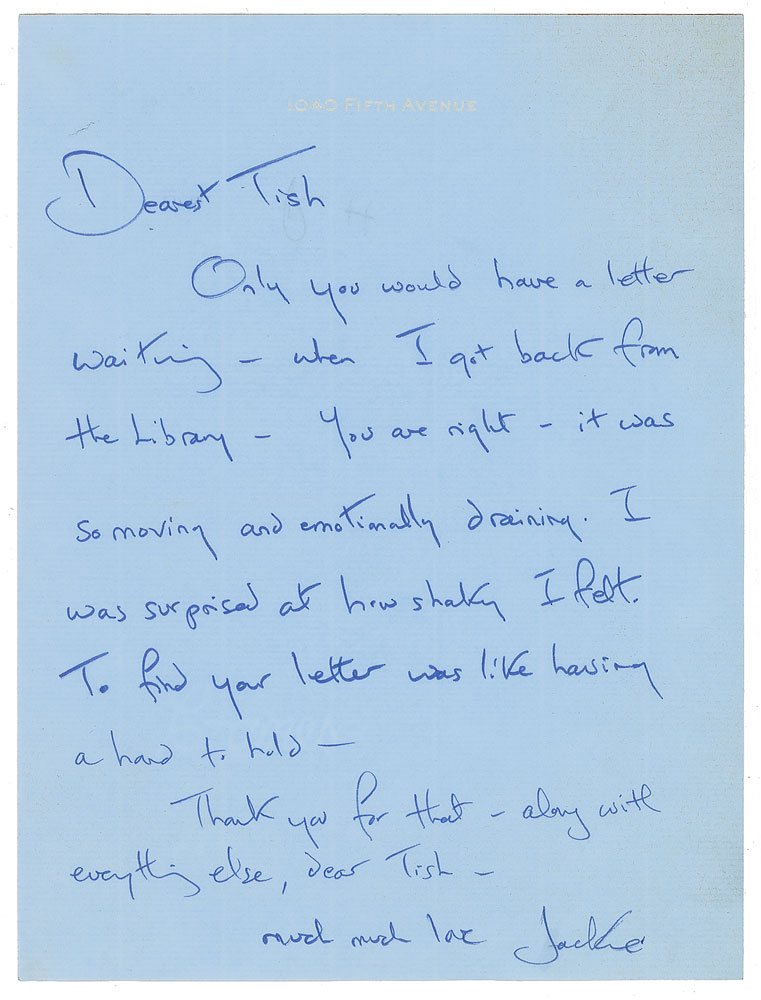 1040 FIFTH AVENUE
Dearest Tish
Only you would have a letter
waiting – when I got back from
the Library – You are right – it was
so moving and emotionally draining. I
was surprised at how shaky I felt.
To find your letter was like having
a hand to hold –
Thank you for that – along with
everything else, dear Tish –
much much love Jackie